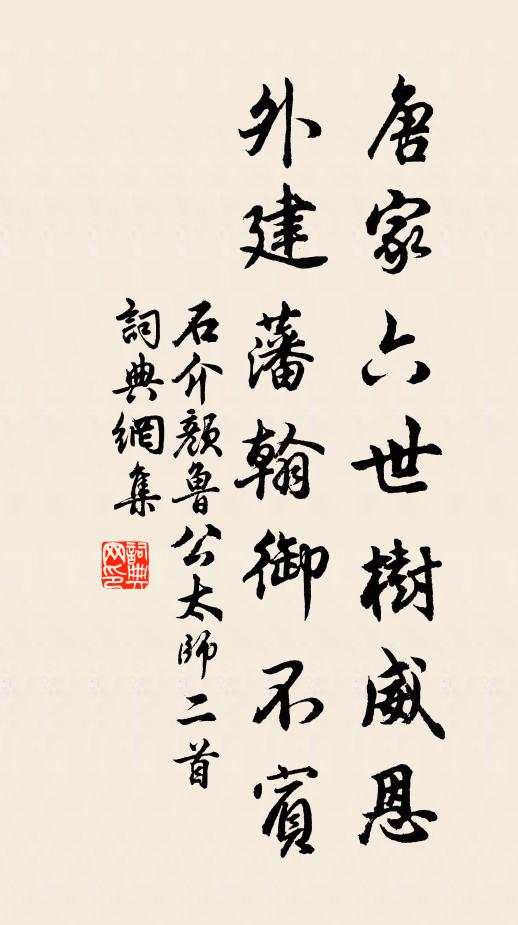 唐家六世樹威恩
外建藩翰御不賓
石介顏魯公太師二首
詞典網集
詞典网印